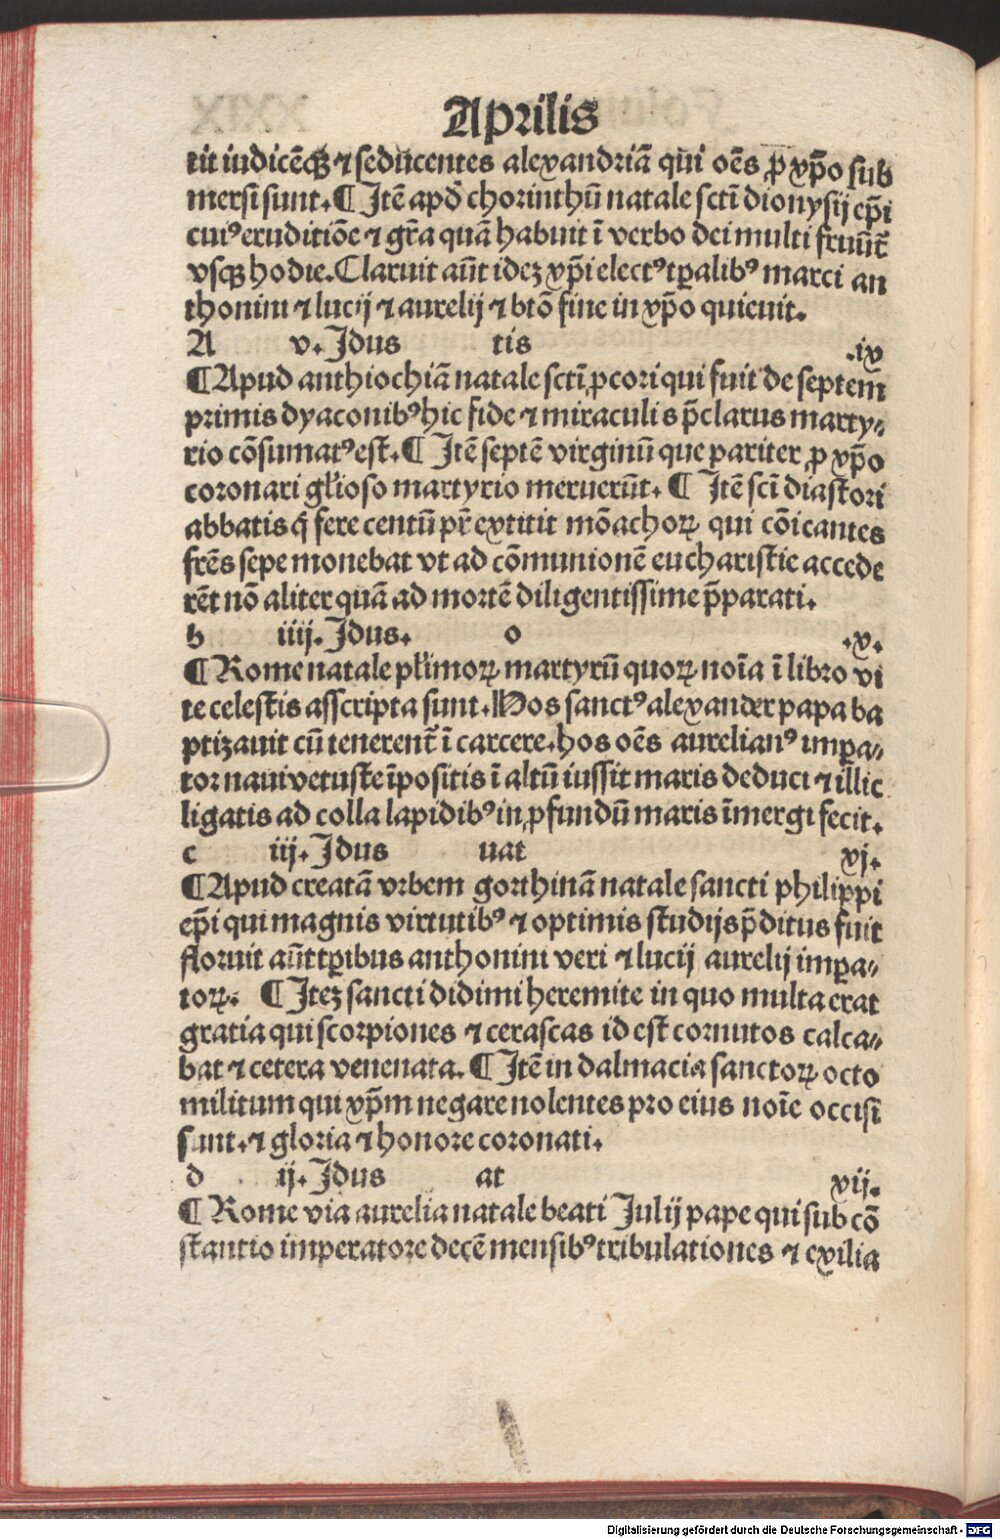 Aprilis
tit iudicēqꝫ ⁊ seducentes alexandriā qui oēs ꝓ xp̄o sub
mersi sunt. ¶ Itē apd̄ chorinthū natale sctī dionysij ep̄i
cuiꝰ eruditiōe ⁊ gr̄a quā habuit ī verbo dei multi fruūt̄
vsqꝫ hodie. Claruit aūt idez xp̄i electꝰ tꝑalibꝰ marci an
thonini ⁊ lucij ⁊ aurelij ⁊ btō fine in xp̄o quieuit.
A v. Idus tis .ix
¶ Apud anthiochiā natale sctī ꝓcori qui fuit de septem
primis dyaconibꝰ hic fide ⁊ miraculis p̄clarus marty⸗
rio cōsumatꝰ est. ¶ Itē septē virginū que pariter ꝓ xp̄o
coronari gl̄ioso martyrio meruerūt. ¶ Itē scī diastori
abbatis q̄ fere centū pr̄ extitit mōachoꝝ qui cōicantes
fr̄es sepe monebat vt ad cōmunionē eucharistie accede
rēt nō aliter quā ad mortē diligentissime p̄parati.
b iiij. Idus. o .x.
¶ Rome natale pl̄imoꝝ martyrū quoꝝ noīa ī libro vi
te celestis asscripta sunt. Hos sanctꝰ alexander papa ba
ptizauit cū tenerent̄ ī carcere. hos oēs aurelianꝰ impꝑa⸗
tor naui vetuste īpositis ī altū iussit maris deduci ⁊ illic
ligatis ad colla lapidibꝰ in ꝓfundū maris īmergi fecit.
c iij. Idus uat xj.
¶ Apud creatā vrbem gorthinā natale sancti philippi
ep̄i qui magnis virtutibꝰ ⁊ optimis studijs p̄ditus fuit
floruit aūt tꝑibus anthonini veri ⁊ lucij aurelij impꝑa⸗
toꝝ. ¶ Itez sancti didimi heremite in quo multa erat
gratia qui scorpiones ⁊ cerascas id est cornutos calca⸗
bat ⁊ cetera venenata. ¶ Itē in dalmacia sanctoꝝ octo
militum qui xp̄m negare nolentes pro eius noīe occisī
sunt. ⁊ gloria ⁊ honore coronati.
d ij. Idus at xij.
¶ Rome via aurelia natale beati Julij pape qui sub cō
stantio imperatore decē mensibꝰ tribulationes ⁊ exilia
Digitalisierung gefördert durch die Deutsche Forschungsgemeinschaft - DFG